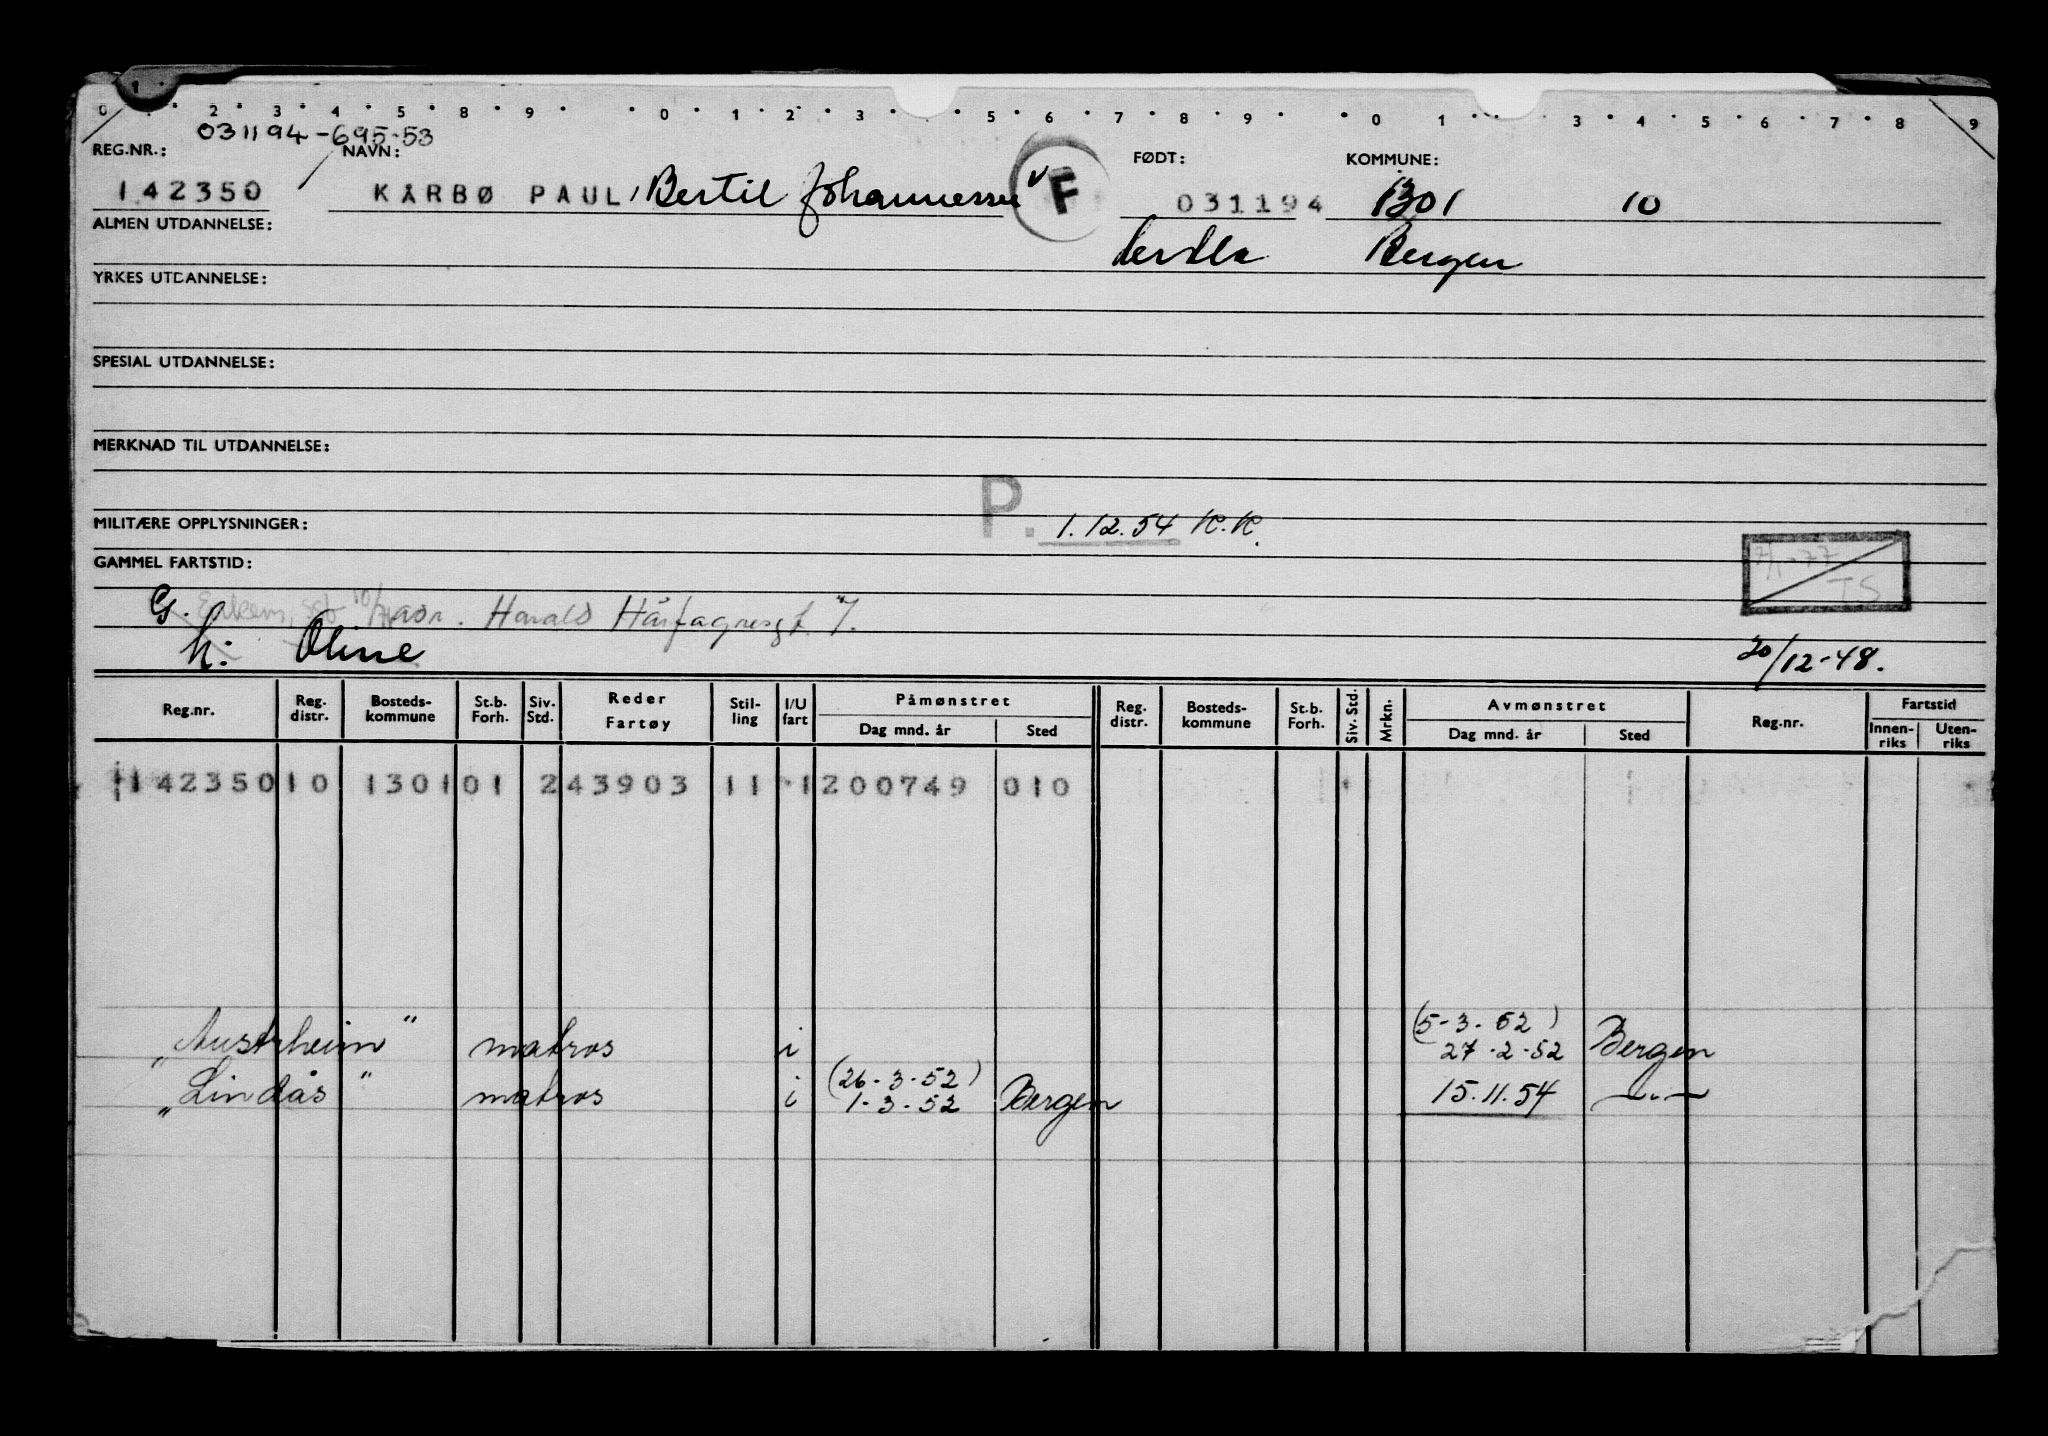 0 1 2 3 4 5 8 9 0 1 2 3 5 6 7 8 9 0 1 3 4 5 6 7 8 9
031194-695-53
REG.NR.: NAVN: FØDT: KOMMUNE:
142350 KÅRBØ PAUL, Bertil Johannessen F 031194 1301 10
ALMEN UTDANNELSE: Herdla Bergen
YRKES UTDANNELSE:
SPESIAL UTDANNELSE:
MERKNAD TIL UTDANNELSE:
MILITÆRE OPPLYSNINGER: P. 1.12.54 K.K.
GAMMEL FARTSTID:
TS
G. Harald Hårfagresgt. 7.
h: Oline 20/12-48.
Reg.nr. Reg. distr. Bosteds-kommune St.b. Forh. Siv. Std. Reder Fartøy Stil-ling I/U fart Påmønstret Reg. distr. Bosteds-kommune St.b. Forh. Siv. Std. Mrkn. Avmønstret Reg.nr. Fartstid
Dag mnd. år Sted Dag mnd. år Sted Innen-riks Uten-riks
142350 10 1301 01 2 43903 11 1 200749 010
(5-3-52)
"Austrheim" matros i 27-2-52 Bergen
(26-3-52)
"Lindås" matros i 1-3-52 Bergen 15.11.54 —"—